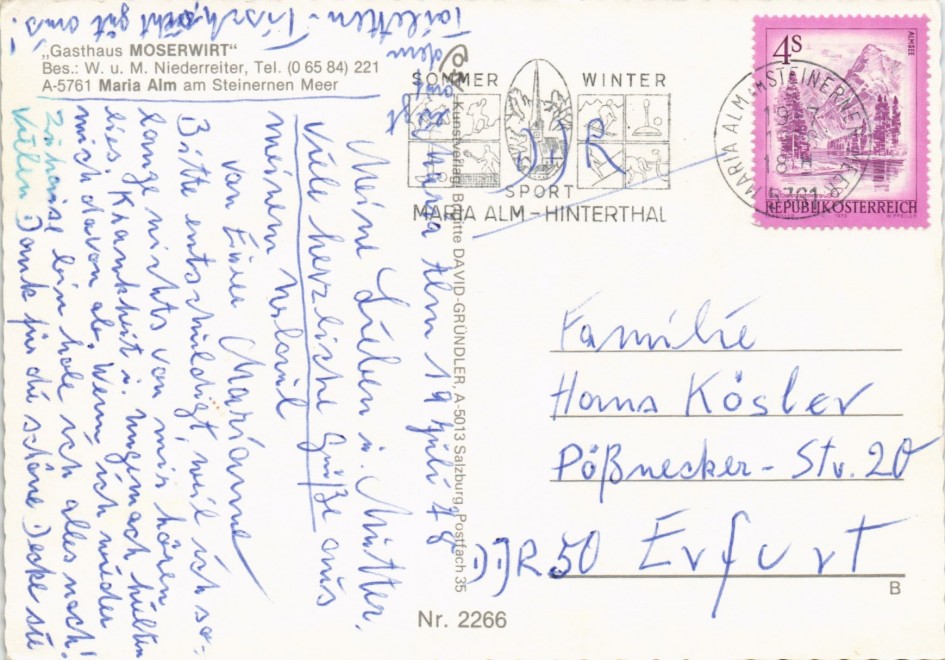 „Gasthaus MOSERWIRT“
Bes.: W. u. M. Niederreiter, Tel. (0 65 84) 221
A-5761 Maria Alm am Steinernen Meer
SOMMER WINTER
SPORT
MARIA ALM - HINTERTHAL
MARIA ALM AM STEINERNEN MEER
5761
4S
ALMSEE
REPUBLIK ÖSTERREICH
Kunstverlag Brigitte DAVID-GRÜNDLER, A-5013 Salzburg, Postfach 35
Maria Alm 19 Juli 78
Meine Lieben u. Mutter.
Viele herzliche Grüße aus
meinem Urlaub
von Eurer Marianne
Bitte entschuldigt, weil ich so-
lange nichts von mir hören
lies Krankheit u. Ungemach hielten
mich davon ab. Wenn ich wieder
Zuhause bin hole ich alles nach!
Vielen Dank für die schöne Decke sie
dem
Toiletten-Tisch, sieht gut aus!
DDR
Familie
Hans Kösler
Pößnecker-Str. 20
DDR 50 Erfurt
B
Nr. 2266